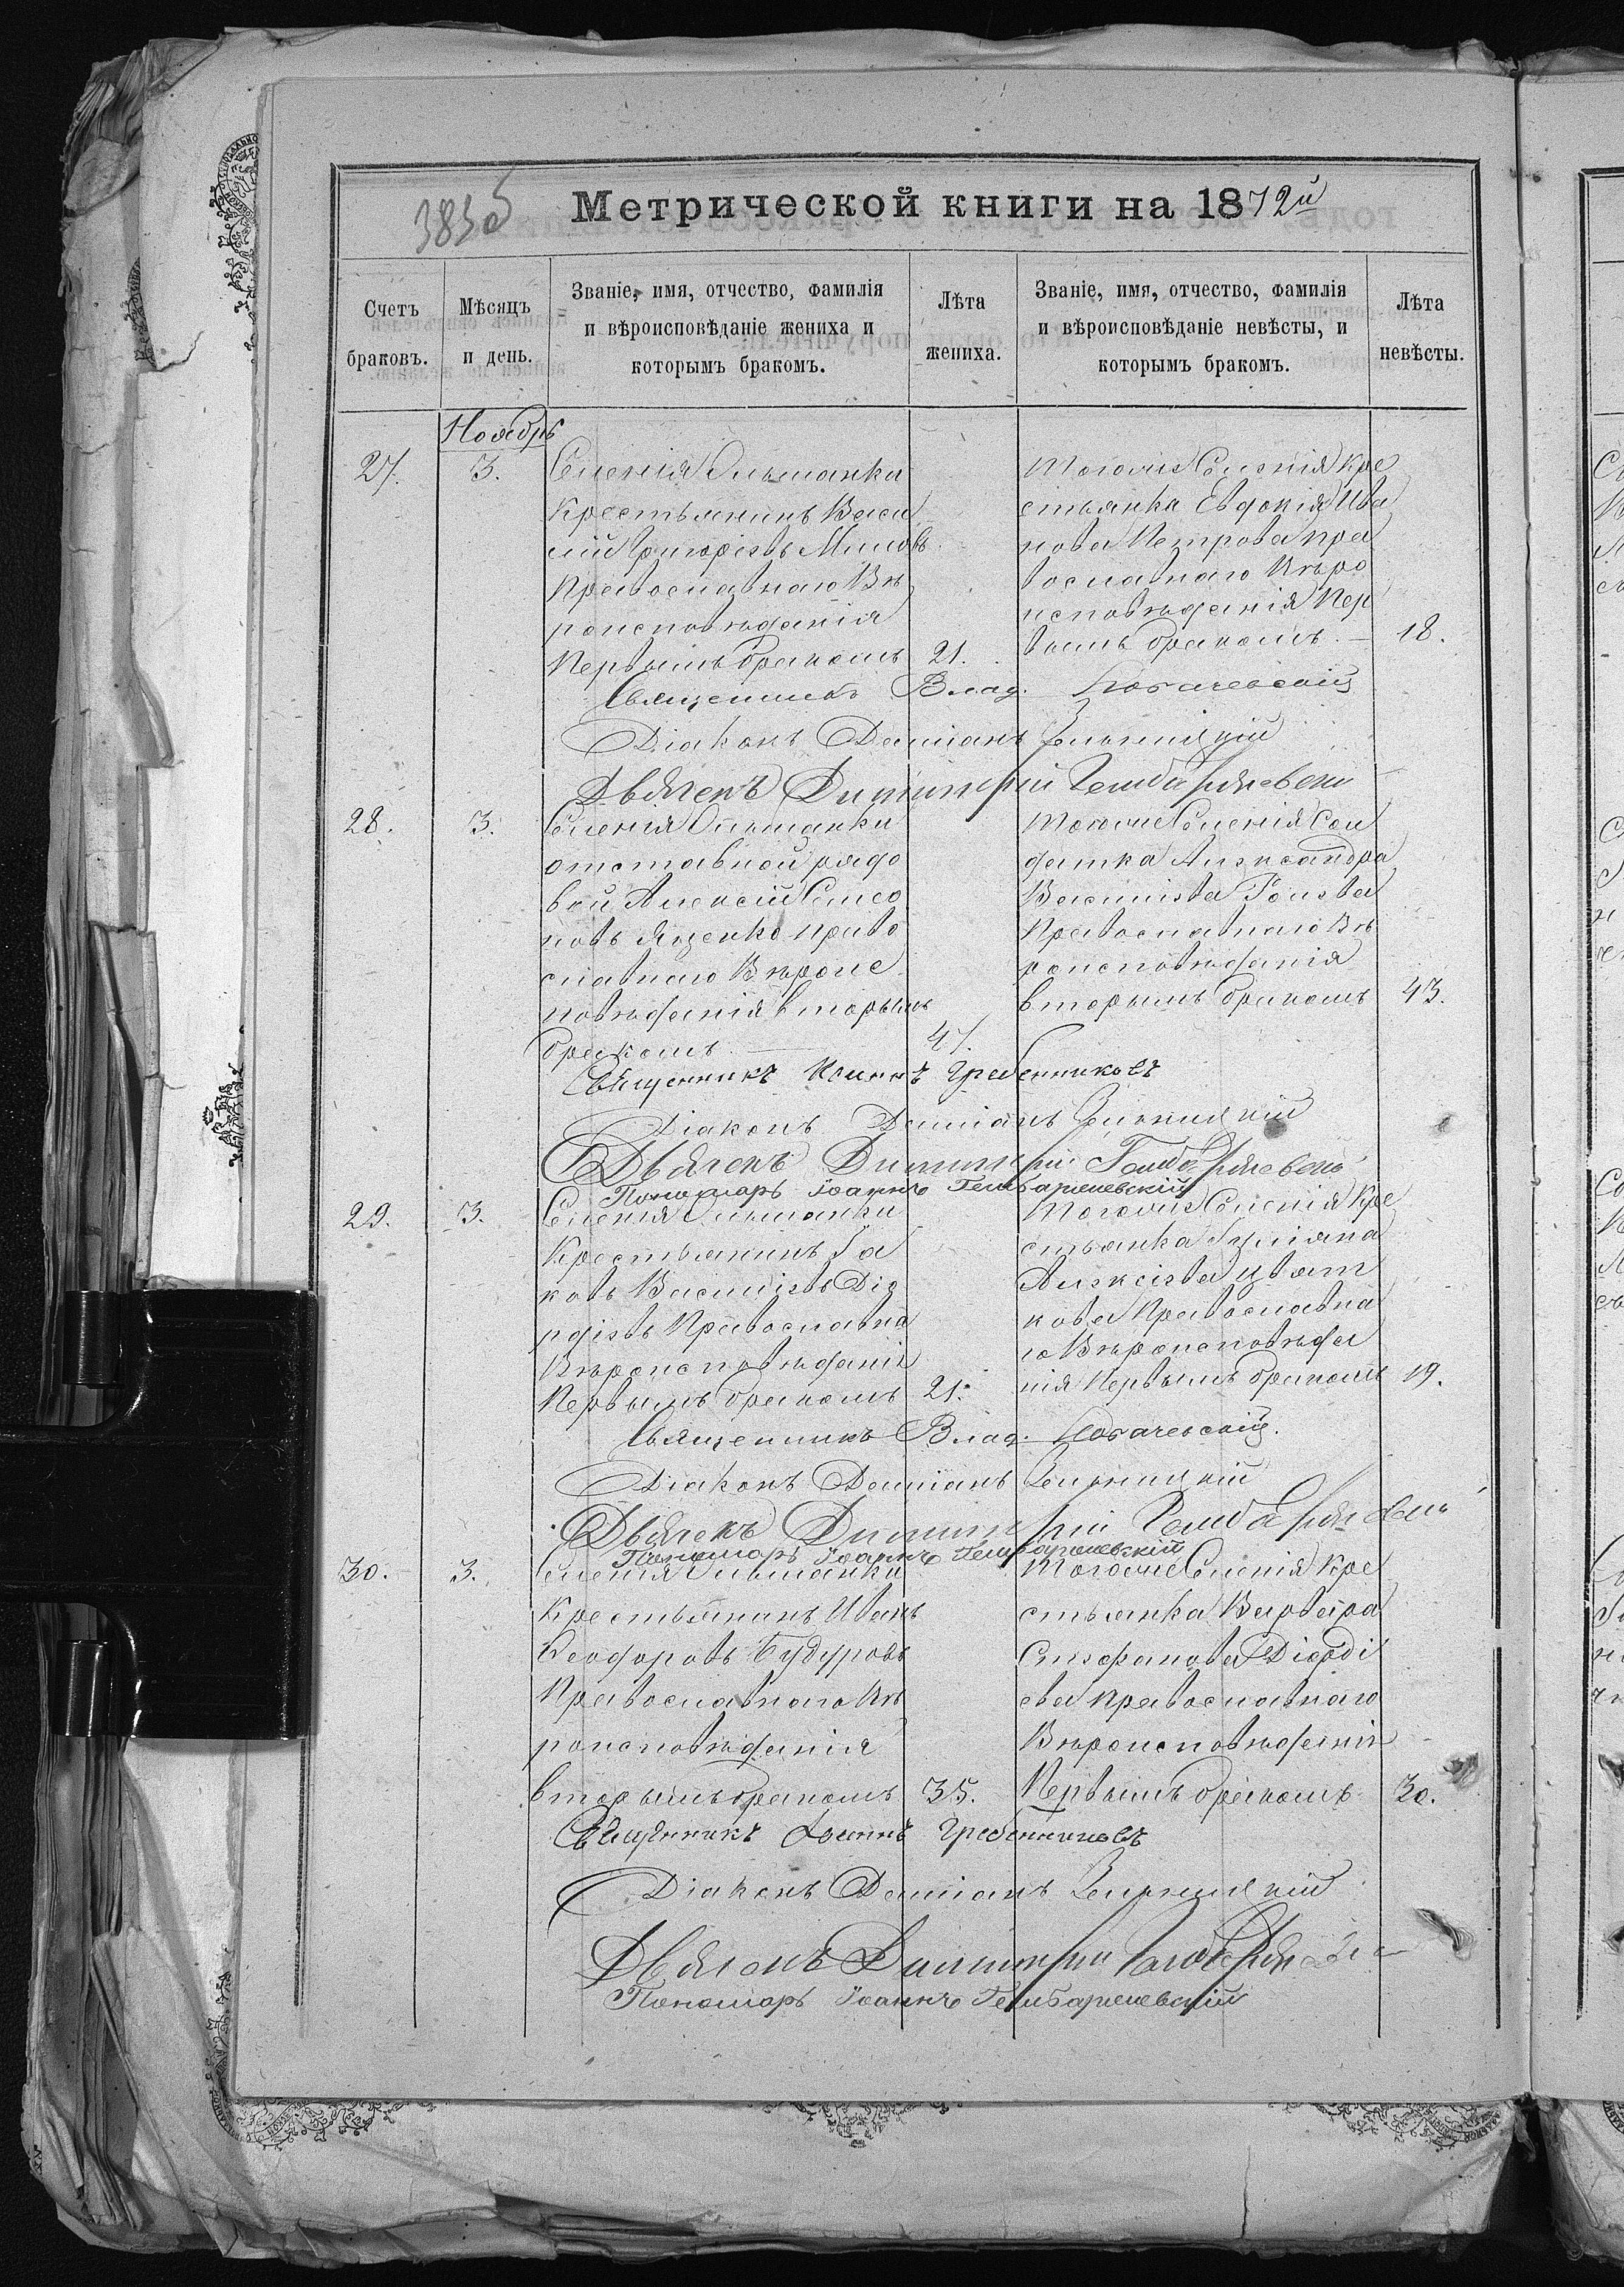 383об
Метрической книги на 1872й
Счетъ браковъ.
Мѣсяцъ и день.
Званіе, имя, отчество, фамилія и вѣроисповѣданіе жениха и которымъ бракомъ.
Лѣта жениха.
Званіе, имя, отчество, фамилія и вѣроисповѣданіе невѣсты, и которымъ бракомъ.
Лѣта невѣсты.
Ноябрь
27.
3.
Селенія Ольшанки
Крестьянинъ Васи
лій Григорьевъ
Православнаго Вѣ
роисповѣданія
Первымъ бракомъ
21.
Тогоже Селенія Кре
стьянка Евдокія Ива
нова Петрова пра
вославнаго Вѣро
исповѣданія Пер
вымъ бракомъ.
18.
Священникъ Влад. Ковачевскій
Діаконъ Даміанъ
Дьячекъ Димитрій Гембаржевскій
28.
3.
Селенія Ольшанки
отставной рядо
вой Алексѣй Семео
новъ Яценко право
славнаго Вѣроис
повѣданія вторымъ
бракомъ
47.
Тогоже Селенія Сол
датка Александра
Василіева
Православнаго Вѣ
роисповѣданія
вторымъ бракомъ
43.
Священникъ Іоаннъ Гребенниковъ
Діаконъ Даміанъ
Дьячекъ Димитрій Гембаржевскій
Пономарь Іоаннъ Гембаржевскій
29.
3.
Селенія Ольшанки
Крестьянинъ Іа
ковъ Василіевъ Діо
рдіевъ Православна
Вѣроисповѣданія
Первымъ бракомъ
21.
Тогоже Селенія Кре
стьянка Іуліана
Алексіева
кова Православна
го Вѣроисповѣда
нія Первымъ бракомъ
19.
Священникъ Влад. Ковачевскій.
Діаконъ Даміанъ
Дьячекъ Димитрій Гембаржевскій
Пономарь Іоаннъ Гембаржевскій
30.
3.
Селенія Ольшанки
Крестьянинъ Иванъ
Ѳеодоровъ Будуровъ
Православнаго Вѣ
роисповѣданія
вторымъ бракомъ
35.
Тогоже Селенія Кре
стьянка Варвара
Стефанова Діорді
ева православнаго
Вѣроисповѣданія
Первымъ бракомъ
30.
Священникъ Іоаннъ Гребенниковъ
Діаконъ Даміанъ
Дьячекъ Димитрій Гембаржевскій
Пономарь Іоаннъ Гембаржевскій